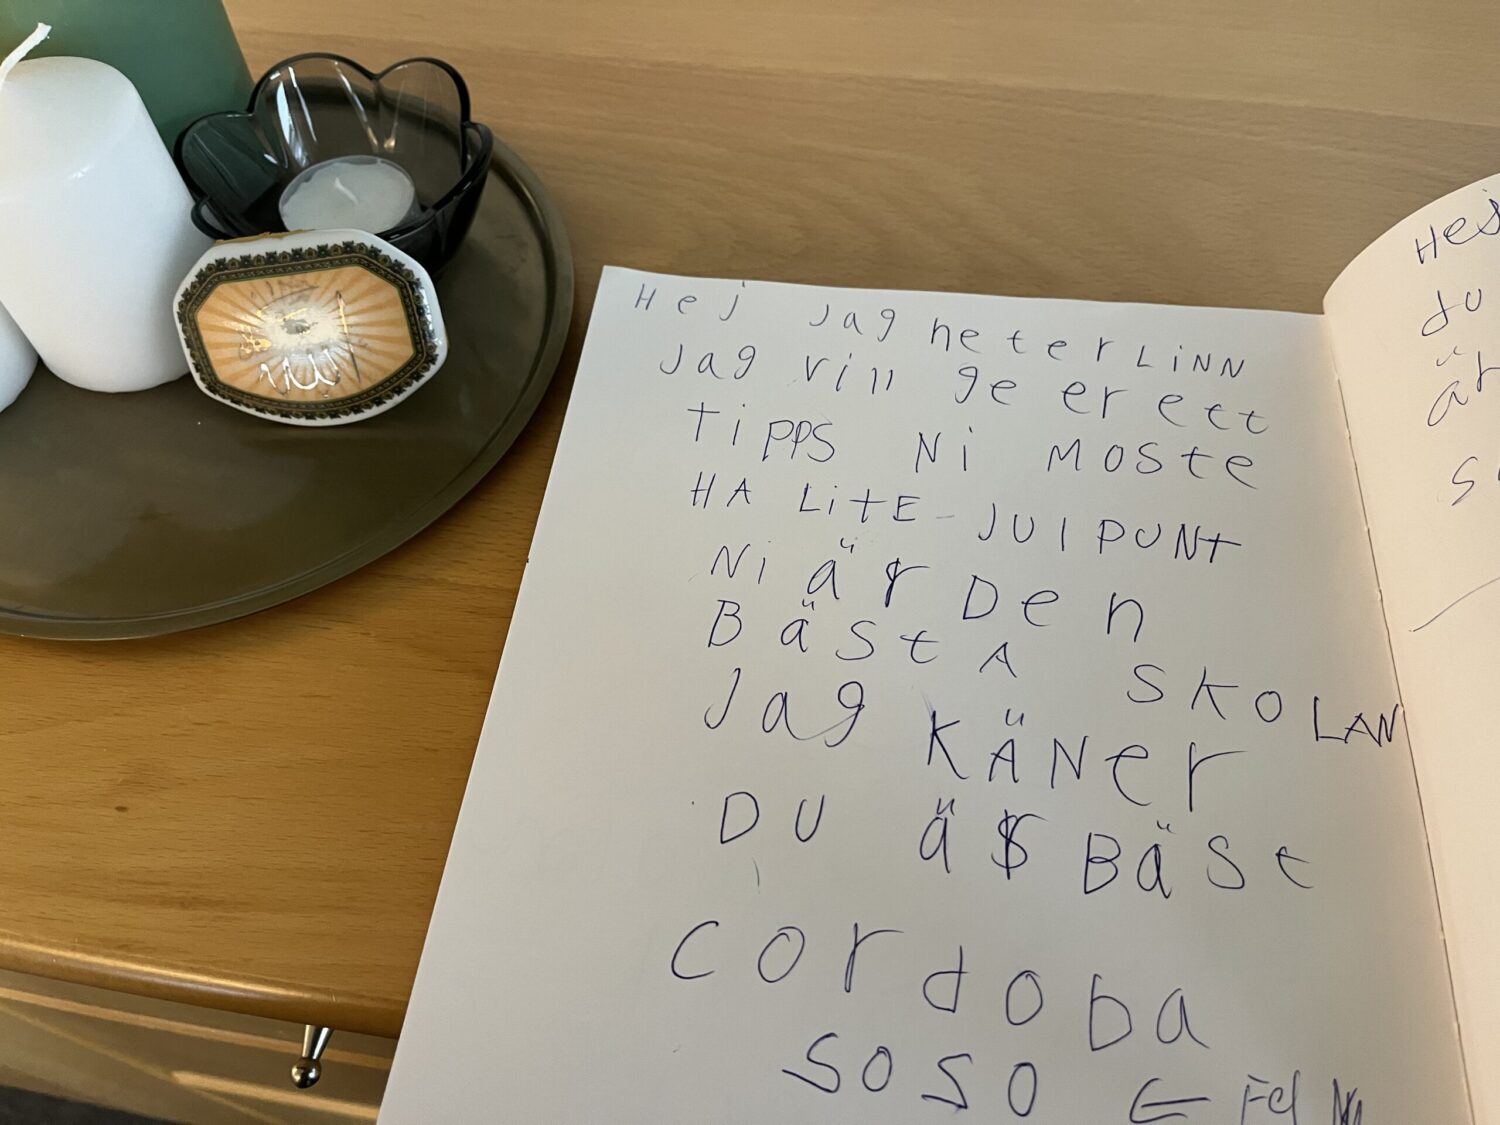 Hej jag heter LiNN
Jag vill ge er ett
TiPPS Ni MOSte
HA LitE JUlPUNT
Ni är Den
BäStA SKOLAN
Jag KÄNer
DU äR BäSt
cordoba
SOSO ←
Hej
du
är